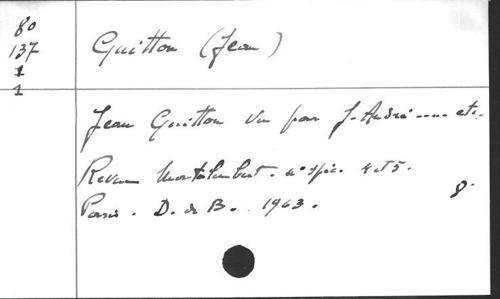 80
137
1
1
Guitton (Jean)
Jean Guitton vu par J. André ..... etc.
Revue Montalembert. n° spéc. 4 et 5.
Paris. D. de B. 1963. 8°